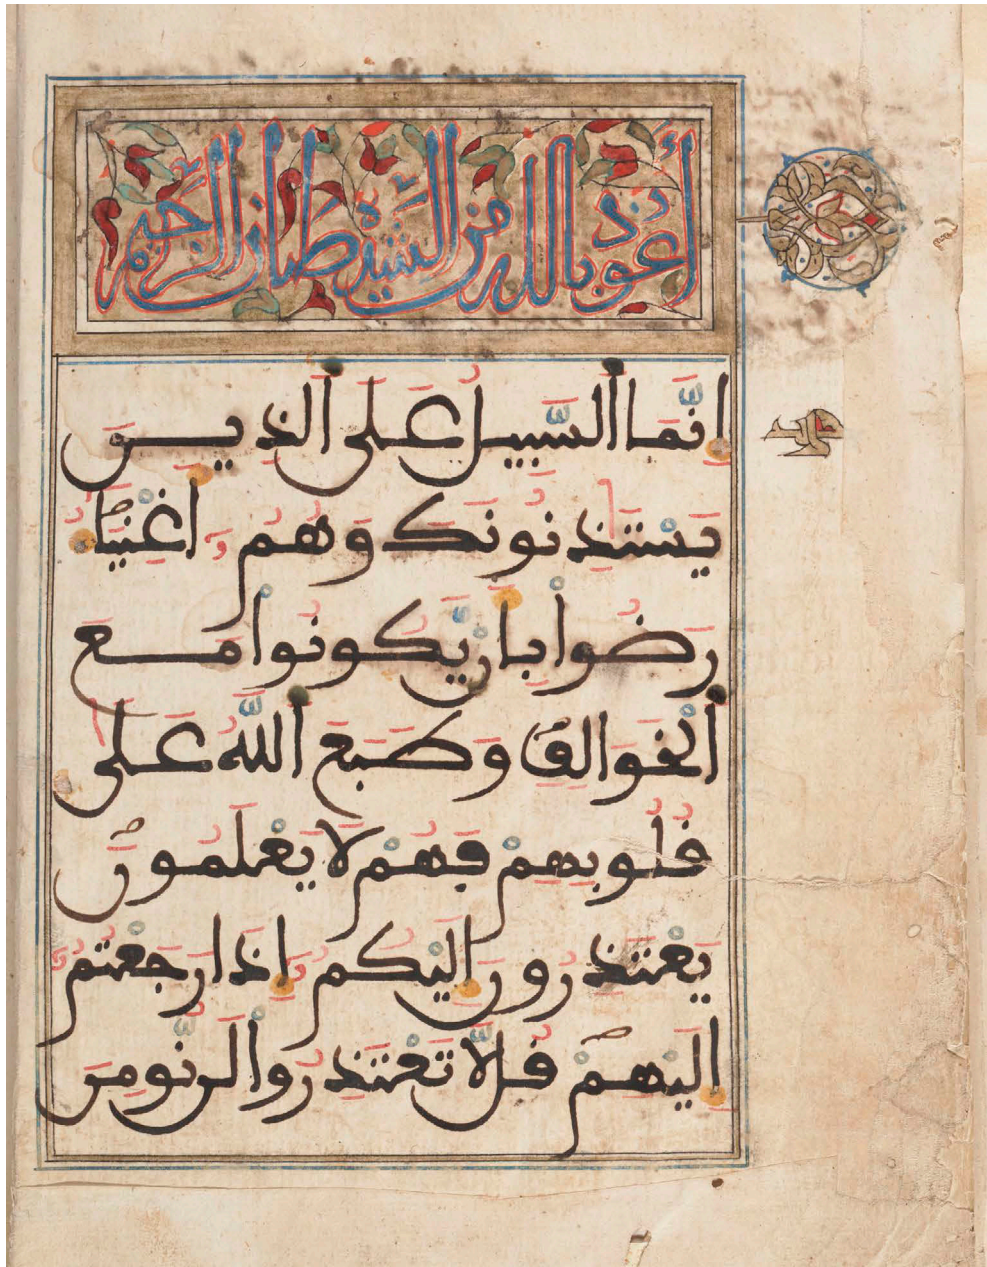 أعوذ بالله من الشيطان الرجيم
انما السبيل على الذين
يستذنونك وهم أغنيا
رضوا بان يكونوا مع
الخوالف وطبع الله على
قلوبهم فهم لا يعلمون
يعتذرون اليكم اذا رجعتم
اليهم قل لا تعتذروا لن نومن